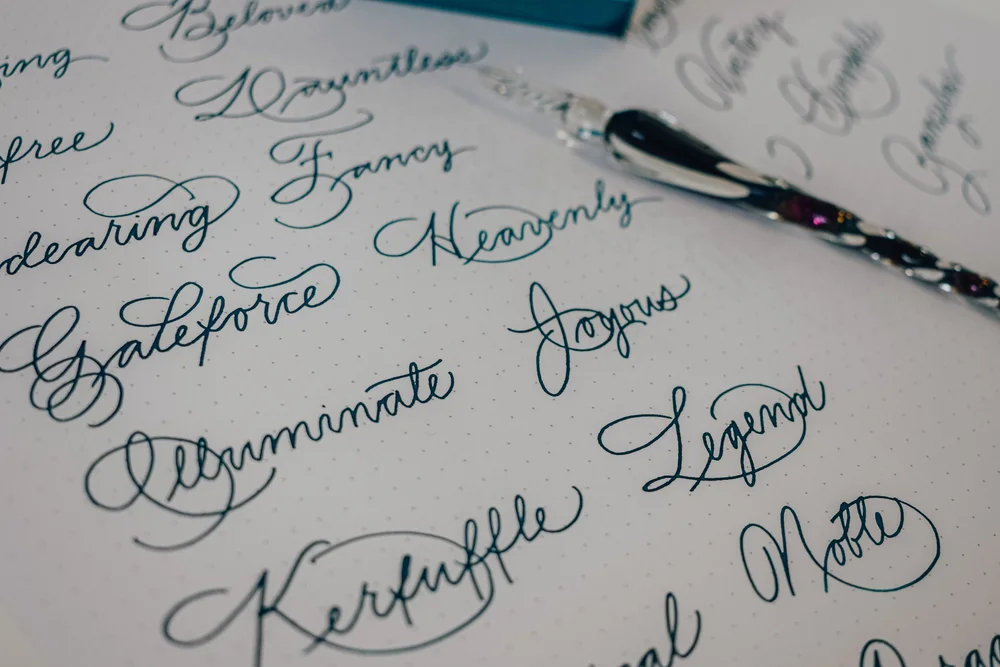 Beloved
ing
Dauntless
free
Fancy
dearing
Heavenly
Galeforce
Joyous
Illuminate
Legend
Kerfuffle
Noble
nal